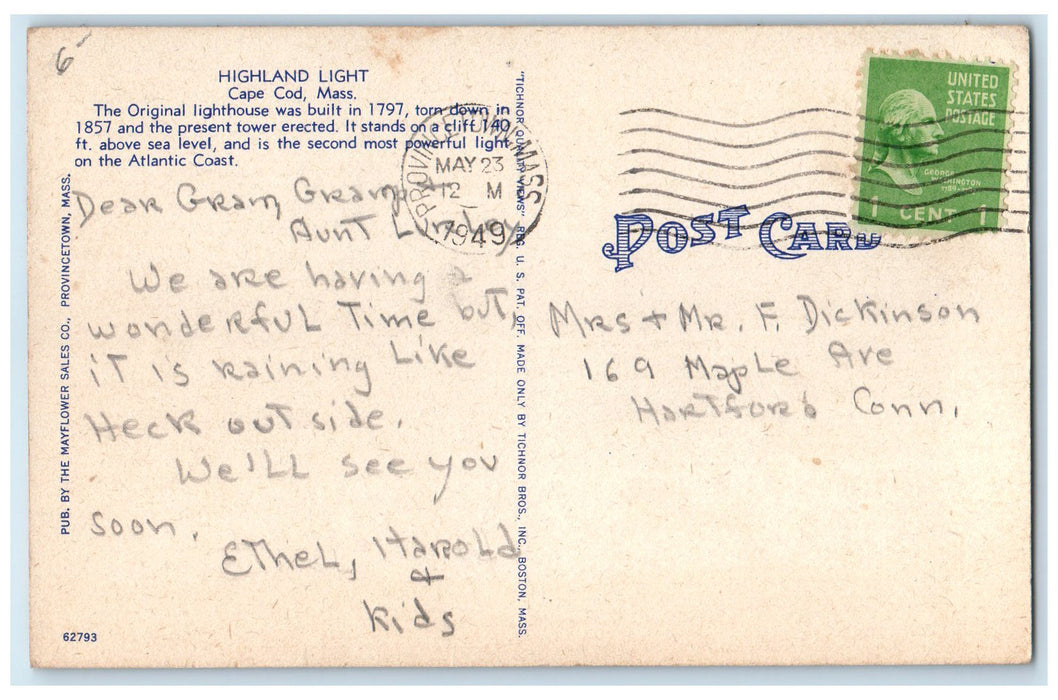 6-
HIGHLAND LIGHT
Cape Cod, Mass.
The Original lighthouse was built in 1797, torn down in
1857 and the present tower erected. It stands on a cliff 140
ft. above sea level, and is the second most powerful light
on the Atlantic Coast.
Dear Gram, Gramp,
Aunt
We are having a
wonderful Time but,
it is raining Like
Heck out side.
We'LL see you
soon.
Ethel, Harold
+
Kids
62793
PUB. BY THE MAYFLOWER SALES CO., PROVINCETOWN, MASS.
"TICHNOR QUALITY VIEWS" REG. U. S. PAT. OFF. MADE ONLY BY TICHNOR BROS., INC., BOSTON, MASS.
PROVINCETOWN, MASS
MAY 23
12 M
1949
UNITED
STATES
POSTAGE
GEORGE
WASHINGTON
1 CENT 1
POST CARD
Mrs + Mr. F. Dickinson
169 Maple Ave
Hartford Conn.